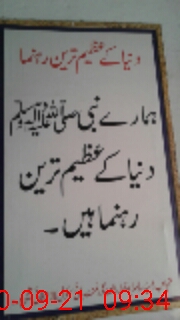 دنیا کے عظیم ترین رہنما
ہمارے نبی صلی اللہ علیہ وسلم
دنیا کے عظیم ترین
رہنما ہیں۔
0-09-21 09:34